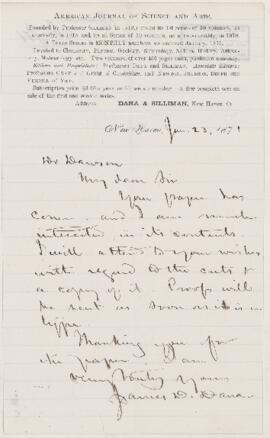 AMERICAN JOURNAL OF SCIENCE AND ARTS.
Founded by Professor SILLIMAN in 1818, and
in 1870
a Third Series in MONTHLY numbers
January, 1871.
Devoted to Chemistry, Physics, Geology, Mineralogy, Natural History, Astron-
omy, Meteorology, etc. Two volumes of over 450 pages each, published annually.
Editors and Proprietors: Professors DANA and SILLIMAN. Associate Editors:
Professors GRAY and GIBBS of Cambridge, and NEWTON, JOHNSON, BRUSH and
VERRILL of Yale.
Subscription price
A few complete sets on
sale of the first and second series.
Address DANA & SILLIMAN, New Haven, Ct.
New Haven, Jan. 23, 1871
Dr Dawson
My dear Sir
Your paper has
come and I am much
interested in its contents.
I will attend to your wishes
with regard to the cuts &
a copy of it. Proofs will
be sent as soon as it is in
type.
Thanking you for
the paper I am
Very truly yours
James D. Dana